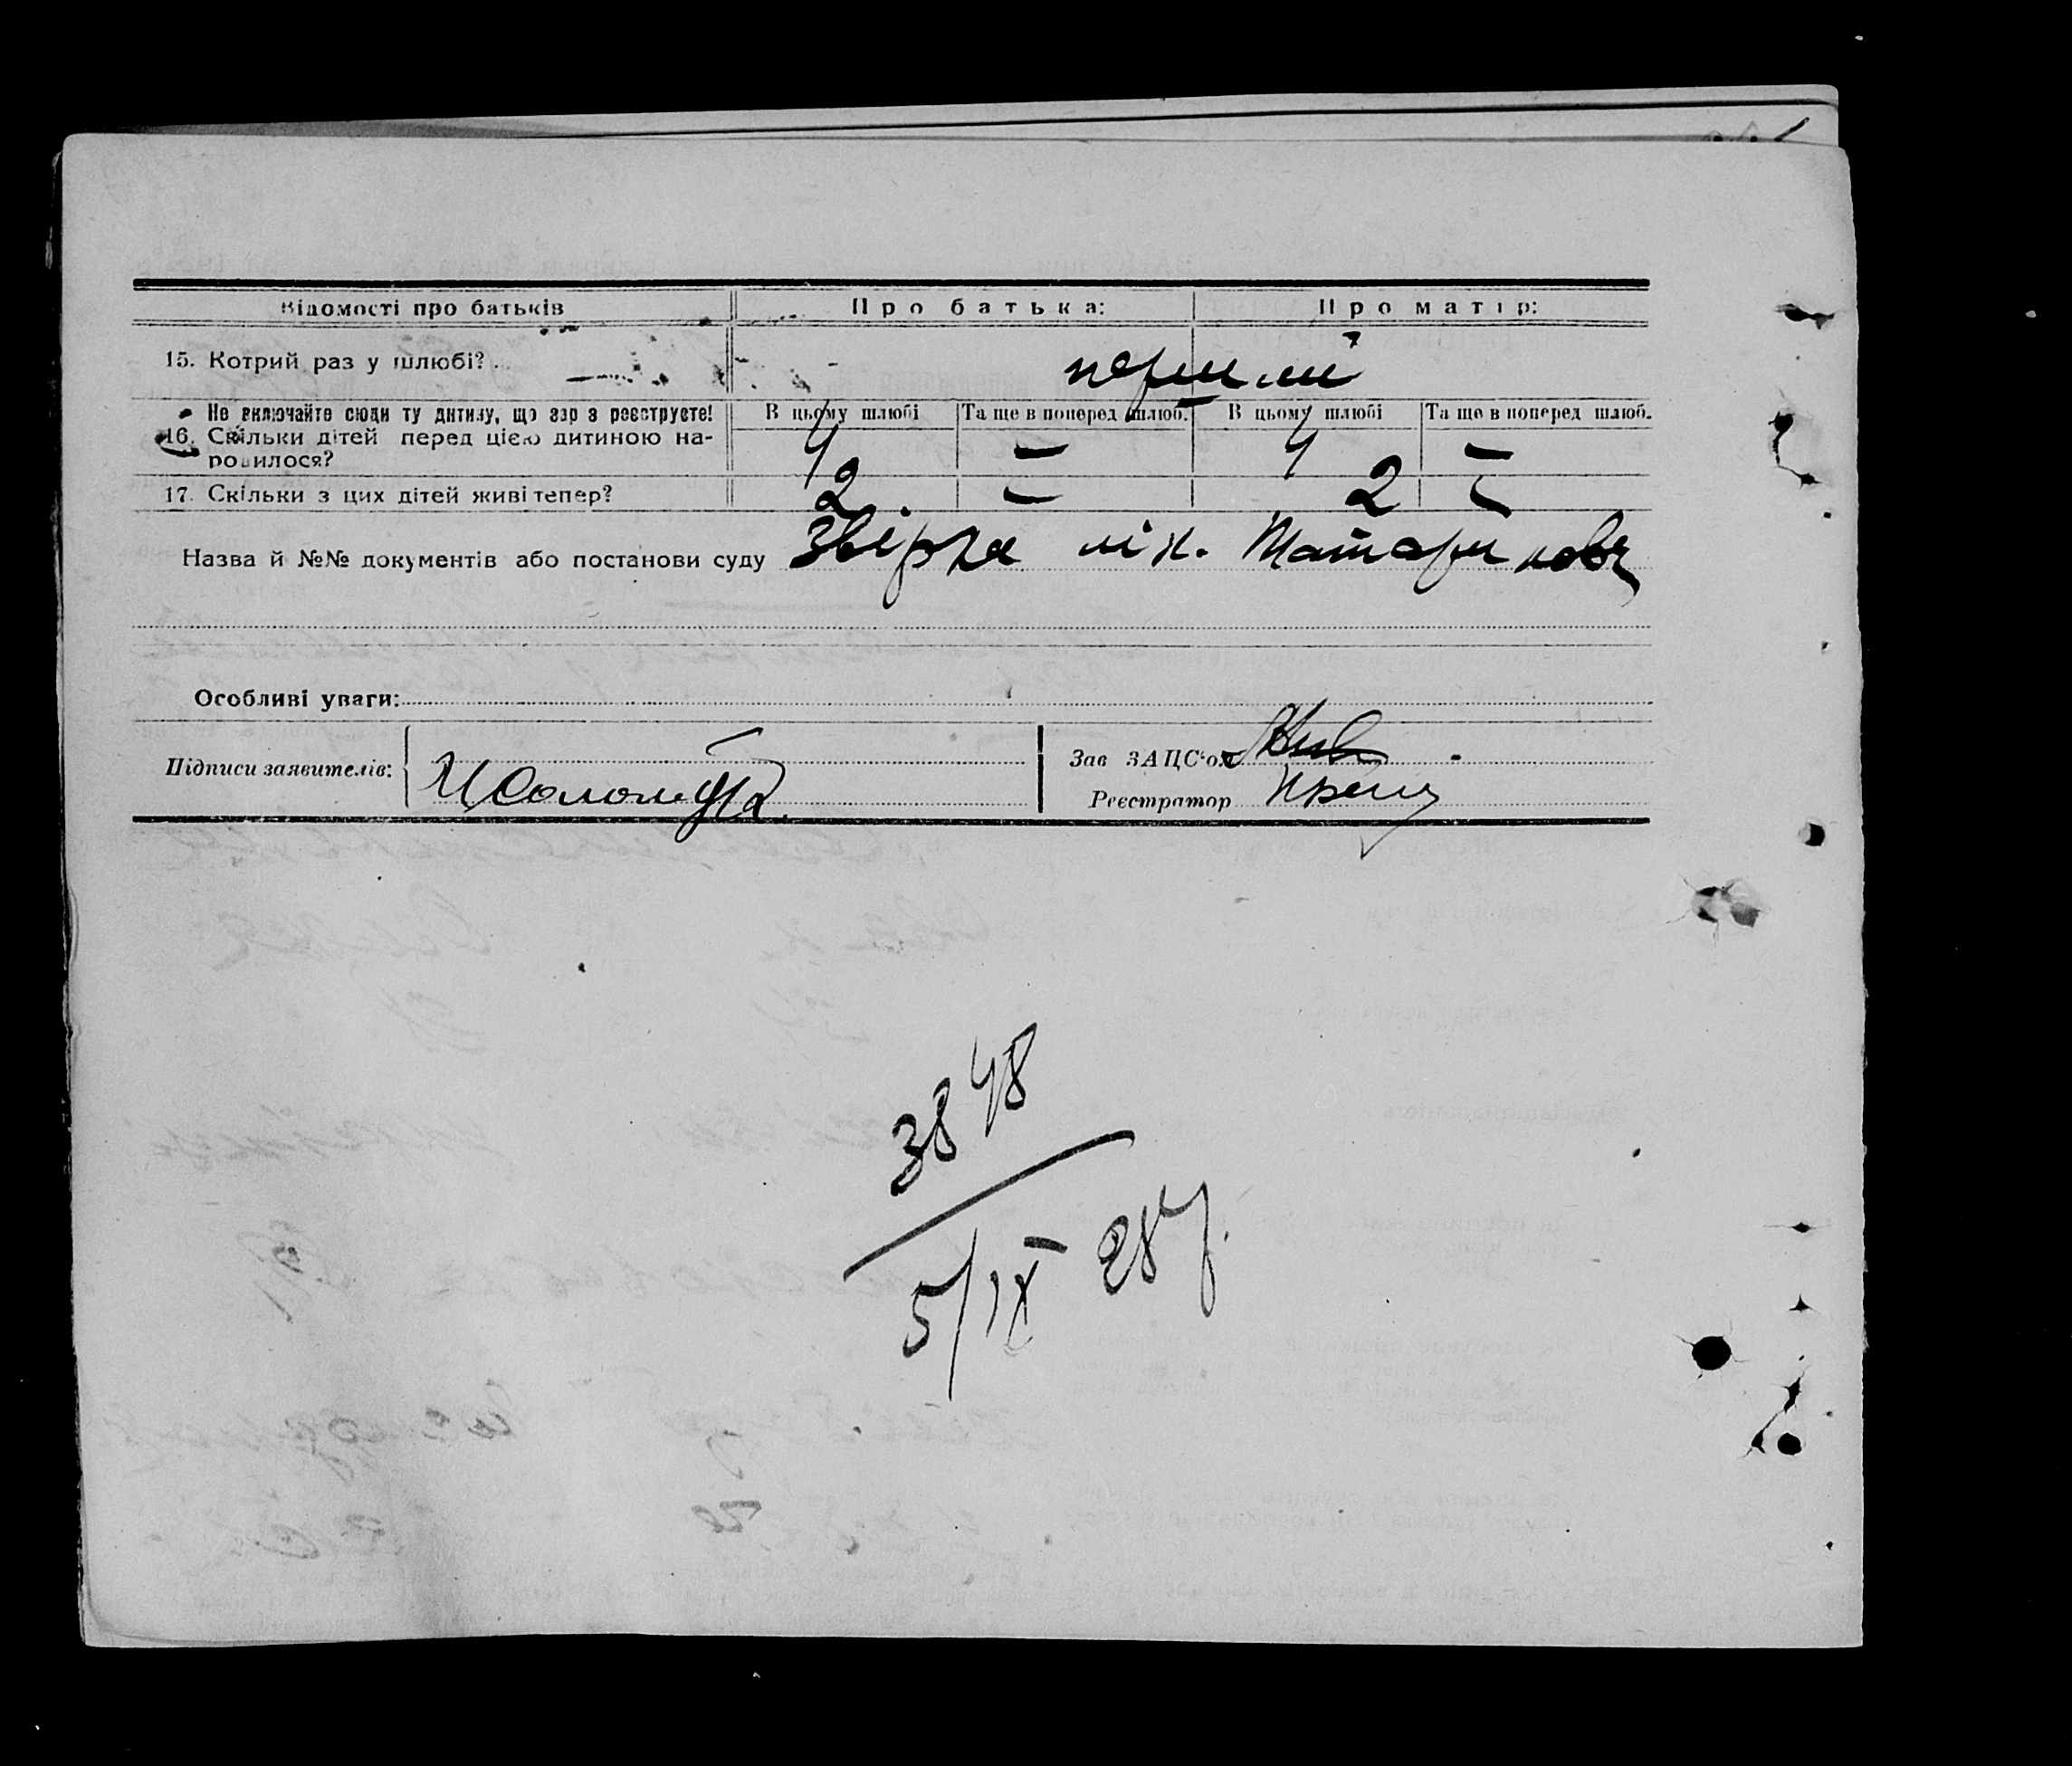 Відомості про батьків Про батька: Про матір:
15. Котрий раз у шлюбі? перший
Не включайте сюди ту дитину, що зар з реєструєте! В цьому шлюбі Та ще в поперед шлюб. В цьому шлюбі Та ще в поперед шлюб.
16. Скільки дітей перед цією дитиною на-
родилося? 4 — 4 —
17. Скільки з цих дітей живі тепер? 2 — 2 —
Назва й №№ документів або постанови суду Звірка лік.
Особливі уваги:
Підписи заявителів: Зав ЗАЦС'ом
Реєстратор
3848
5/IX 28 р.